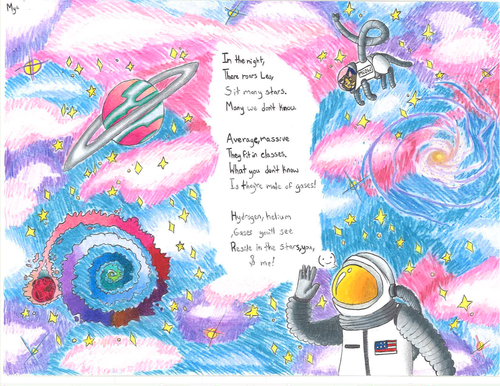 Mya
In the night,
There roars Leo,
Sit many stars.
Many we don't know.
Average, massive
They fit in classes.
What you don't know
Is they're made of gases!
Hydrogen, helium
Gases you'll see
Reside in the stars, you,
& me!